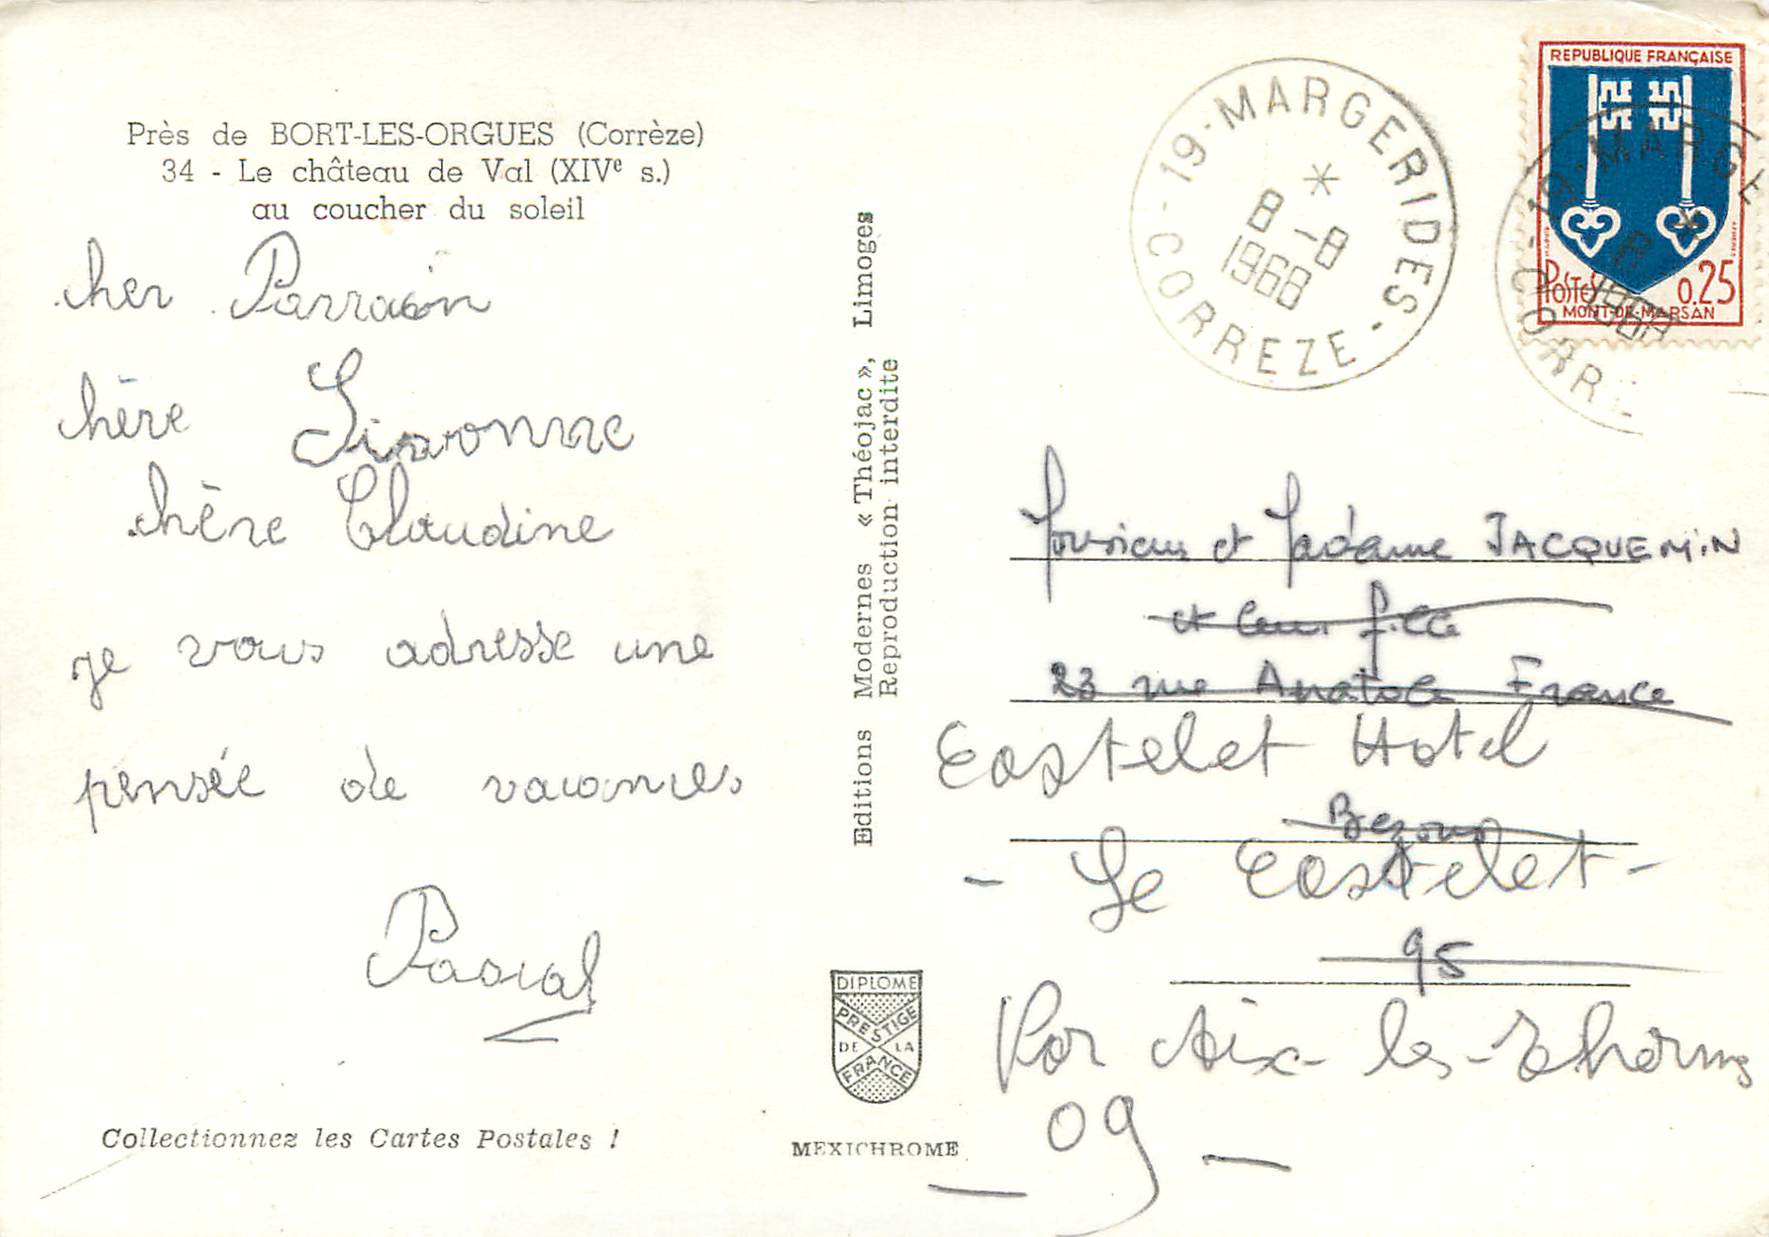 Près de BORT-LES-ORGUES (Corrèze)
34 - Le château de Val (XIVe s.)
au coucher du soleil
cher Parrain
chère Simonne
chère Claudine
je vous adresse une
pensée de vacances
Pascal
Collectionnez les Cartes Postales !
Editions Modernes « Théojac », Limoges
Reproduction interdite
DIPLOME
PRESTIGE
DE LA
FRANCE
MEXICHROME
19-MARGERIDES-
CORREZE-
8-8
1968
REPUBLIQUE FRANÇAISE
POSTES 0,25
MONT-DE-MARSAN
19-MARGE
CORR
8
1968
Monsieur et Madame JACQUEMIN
et leur fille
23 rue Anatole France
Castelet Hotel
Bezons
- Le Castelet -
95
Par Aix-les-Therms
- 09 -